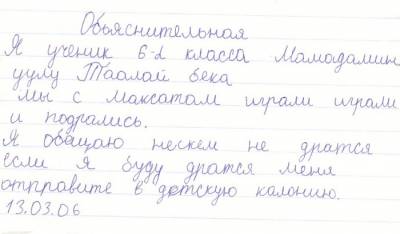 Обьяснительная
Я ученик 6-d класса Мамодамин
уулу Таалай бека
мы с Максатам играли играли
и подрались.
Я обещаю нескем не дратся
если я буду дратся меня
отправите в детскую калонию.
13.03.06